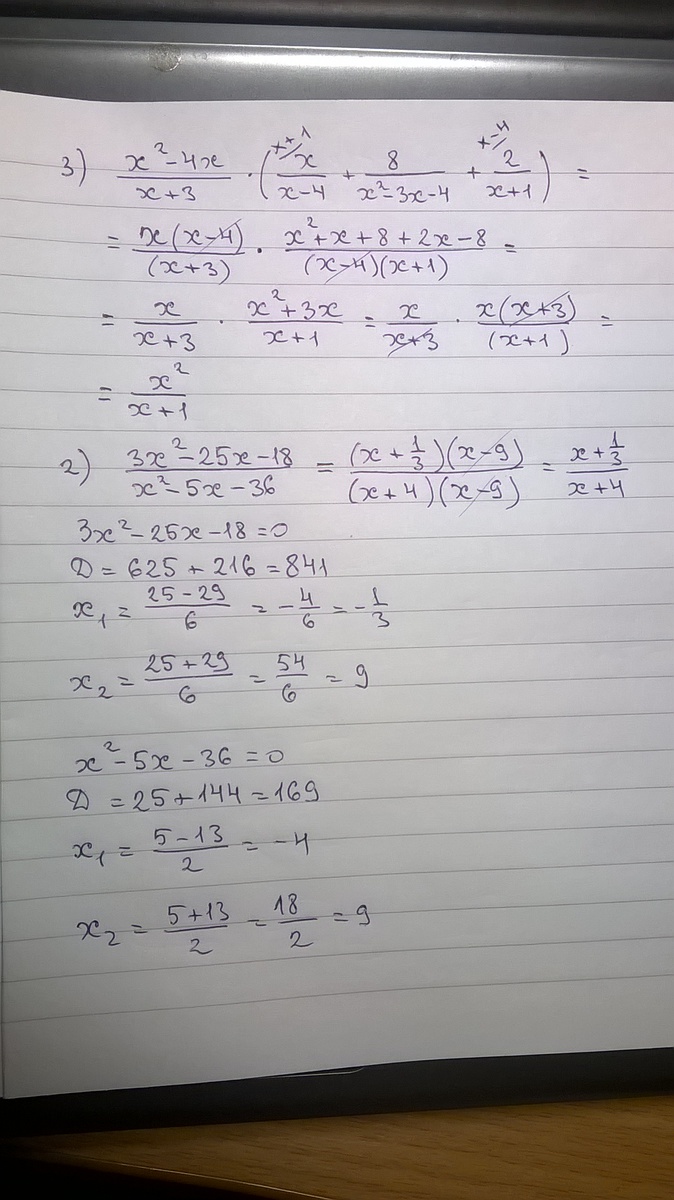 3) (x² - 4x)/(x + 3) · (x/(x - 4) + 8/(x² - 3x - 4) + 2/(x + 1)) =
= x(x - 4)/(x + 3) · (x² + x + 8 + 2x - 8)/((x - 4)(x + 1)) =
= x/(x + 3) · (x² + 3x)/(x + 1) = x/(x + 3) · x(x + 3)/(x + 1) =
= x²/(x + 1)
2) (3x² - 25x - 18)/(x² - 5x - 36) = (x + 1/3)(x - 9)/((x + 4)(x - 9)) = (x + 1/3)/(x + 4)
3x² - 25x - 18 = 0
D = 625 + 216 = 841
x₁ = (25 - 29)/6 = -4/6 = -1/3
x₂ = (25 + 29)/6 = 54/6 = 9
x² - 5x - 36 = 0
D = 25 + 144 = 169
x₁ = (5 - 13)/2 = -4
x₂ = (5 + 13)/2 = 18/2 = 9